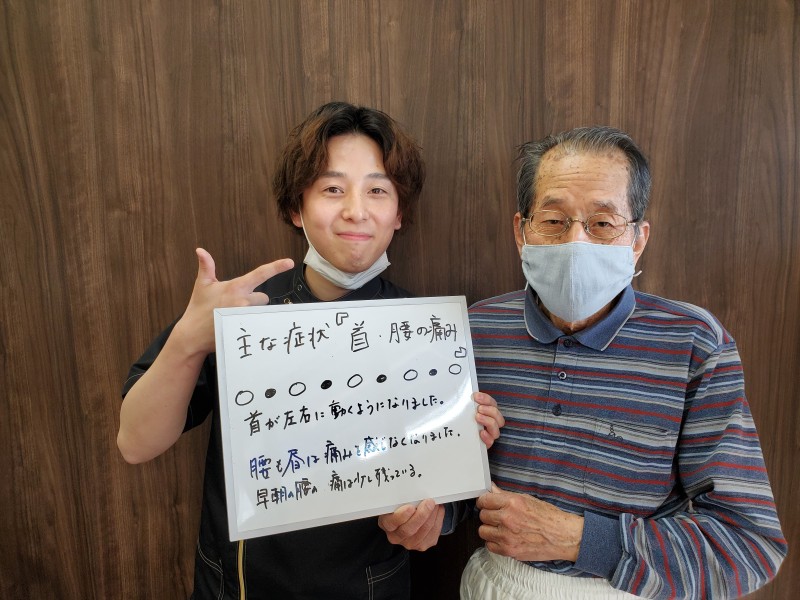 主な症状『首・腰の痛み』
○●○●○●○●○
首が左右に動くようになりました。
腰も昼は痛みを感じなくなりました.
早朝の腰の 痛は少し残っている。